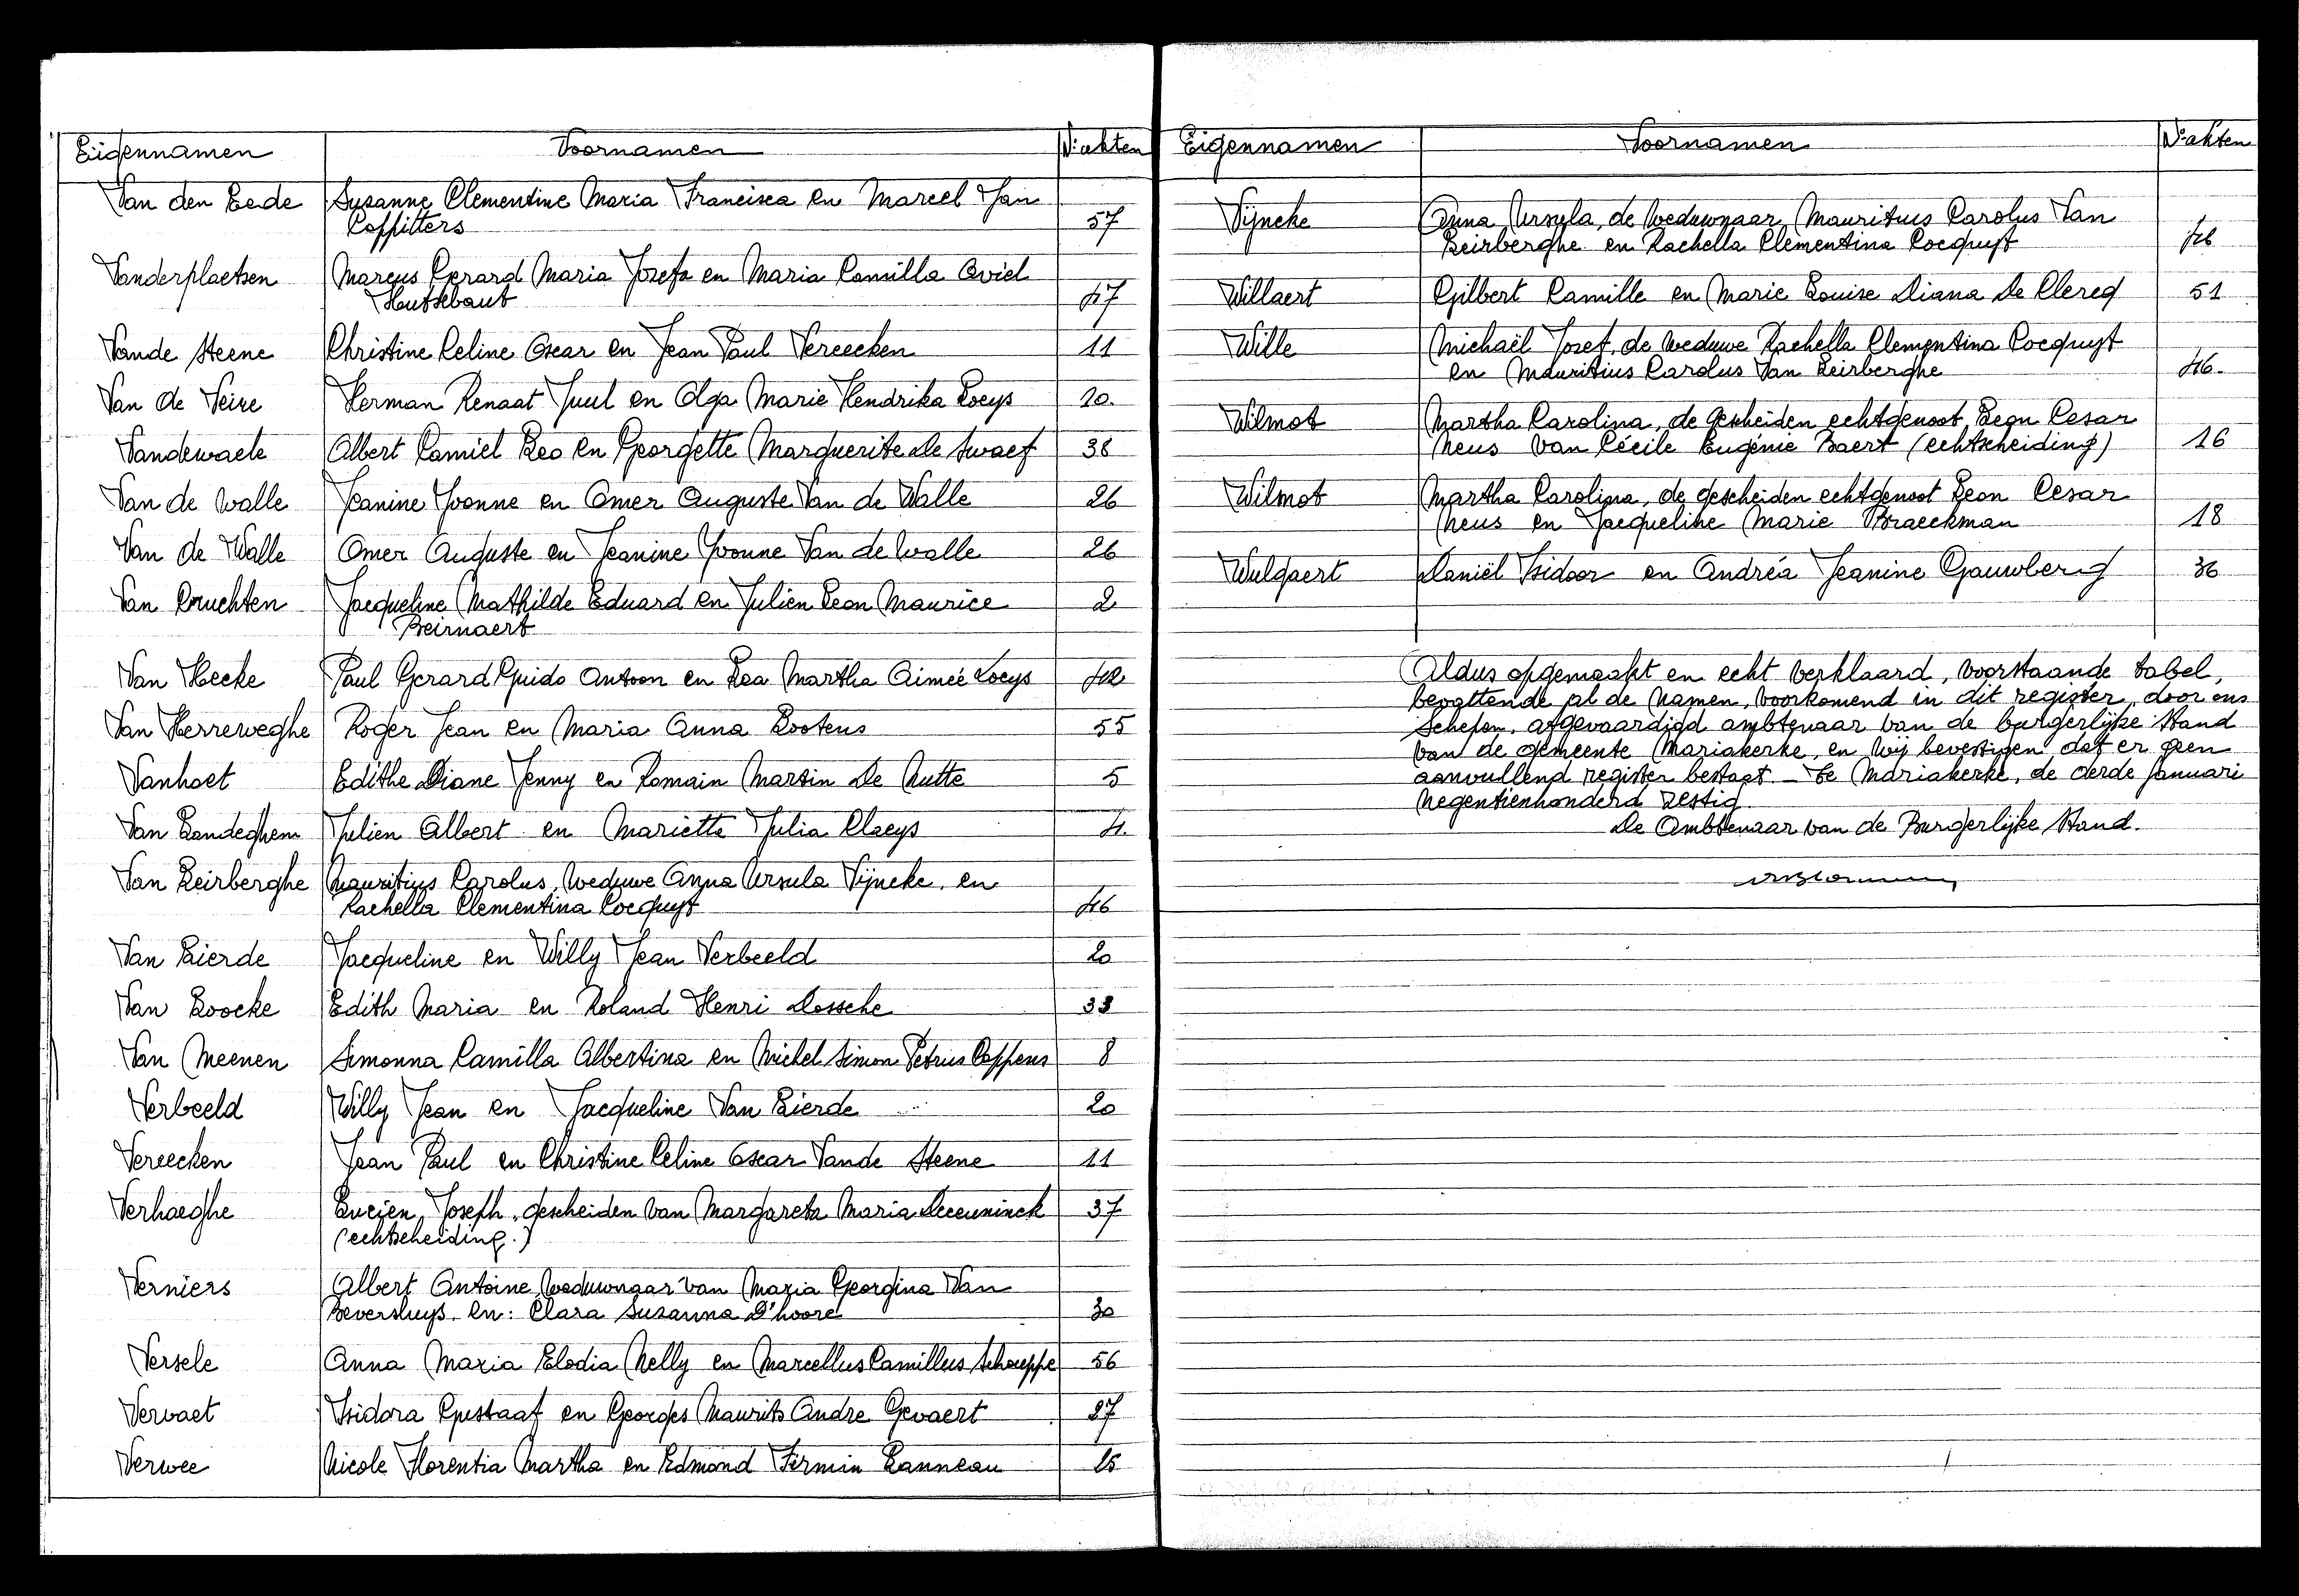 Eigennamen Voornamen N: akten
Van den Eede Susanne Clementine Maria Francisca en Marcel Jan
Coppitters 57
Vanderplaetsen Marcus Gerard Maria Jozefa en Maria Camilla Oviel
Hutsebaut 47
Vande Steene Christine Celine Oscar en Jean Paul Vereecken 11
Van de Veire Herman Renaat Juul en Olga Marie Hendrika Loeys 10.
Vandewaele Albert Camiel Leo en Georgette Marguerite De Swaef 38
Van de Walle Jeanine Yvonne en Omer Auguste Van de Walle 26
Van de Walle Omer Auguste en Jeanine Yvonne Van de Walle 26
Van Druchten Jacqueline Mathilde Eduard en Julien Leon Maurice 2
Beirnaert
Van Hecke Paul Gerard Guido Antoon en Rea Martha Aimée Loeys 42
Van Herreweghe Roger Jean en Maria Anna Lootens 55
Vanhoet Edithe Diane Jenny en Romain Martin De Mutte 5
Van Landeghem Julien Albert en Mariette Julia Claeys 4.
Van Leirberghe Mauritius Carolus, weduwe Anna Ursula Vijncke, en
Rachella Clementina Cocquyt 46
Van Lierde Jacqueline en Willy Jean Verbeeld 20
Van Loocke Edith Maria en Roland Henri Dossche 33
Van Meenen Simonna Camilla Albertina en Michel Simon Petrus Coppens 8
Verbeeld Willy Jean en Jacqueline Van Lierde 20
Vereecken Jean Paul en Christine Celine Oscar Vande Steene 11
Verhaeghe Lucien Joseph, gescheiden van Margareta Maria Deceuninck 37
(echtscheiding.)
Verniers Albert Antoine, weduwnaar van Maria Georgina Van
Beversluys. en: Clara Suzanna D'hoore 30
Versele Anna Maria Elodia Nelly en Marcellus Camillus Schouppe 56
Vervaet Isidora Gustaaf en Georges Maurits Andre Gevaert 27
Verwee Nicole Florentia Martha en Edmond Firmin Lanneau 15
Eigennamen Voornamen N: akten
Vijncke Anna Ursula, de weduwnaar Mauritius Carolus Van
Leirberghe en Rachella Clementina Cocquyt 46
Willaert Gilbert Camille en Marie Louise Diana De Clercq 51
Wille Michaël Jozef, de weduwe Rachella Clementina Cocquyt
en Mauritius Carolus Van Leirberghe 46.
Wilmot Martha Carolina, de gescheiden echtgenoot Leon Cesar
Neus van Cécile Eugénie Baert (echtscheiding) 16
Wilmot Martha Carolina, de gescheiden echtgenoot Leon Cesar
Neus en Jacqueline Marie Braeckman 18
Wulgaert Daniël Isidoor en Andréa Jeanine Gauwberg 36
Aldus opgemaakt en echt verklaard, voorstaande tabel,
bevattende al de namen, voorkomend in dit register, door ons
Schepen, afgevaardigd ambtenaar van de burgerlijke stand
van de gemeente Mariakerke, en wij bevestigen dat er geen
aanvullend register bestaat. — Te Mariakerke, de derde Januari
negentienhonderd zestig
De Ambtenaar van de Burgerlijke Stand.